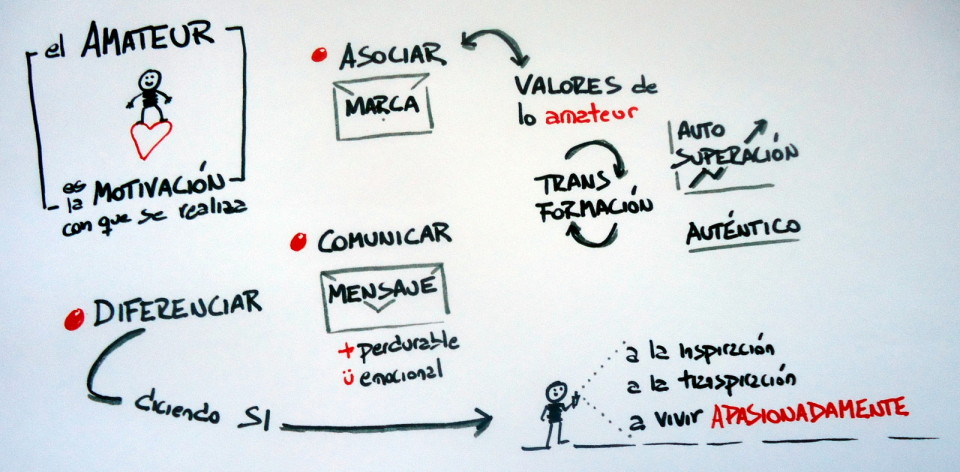 el AMATEUR
es
la MOTIVACIÓN
con que se realiza
ASOCIAR
MARCA
VALORES de
lo amateur
TRANS
FORMACIÓN
AUTO
SUPERACIÓN
AUTÉNTICO
COMUNICAR
MENSAJE
+ perdurable
ü emocional
DIFERENCIAR
diciendo SI
a la inspiración
a la transpiración
a vivir APASIONADAMENTE